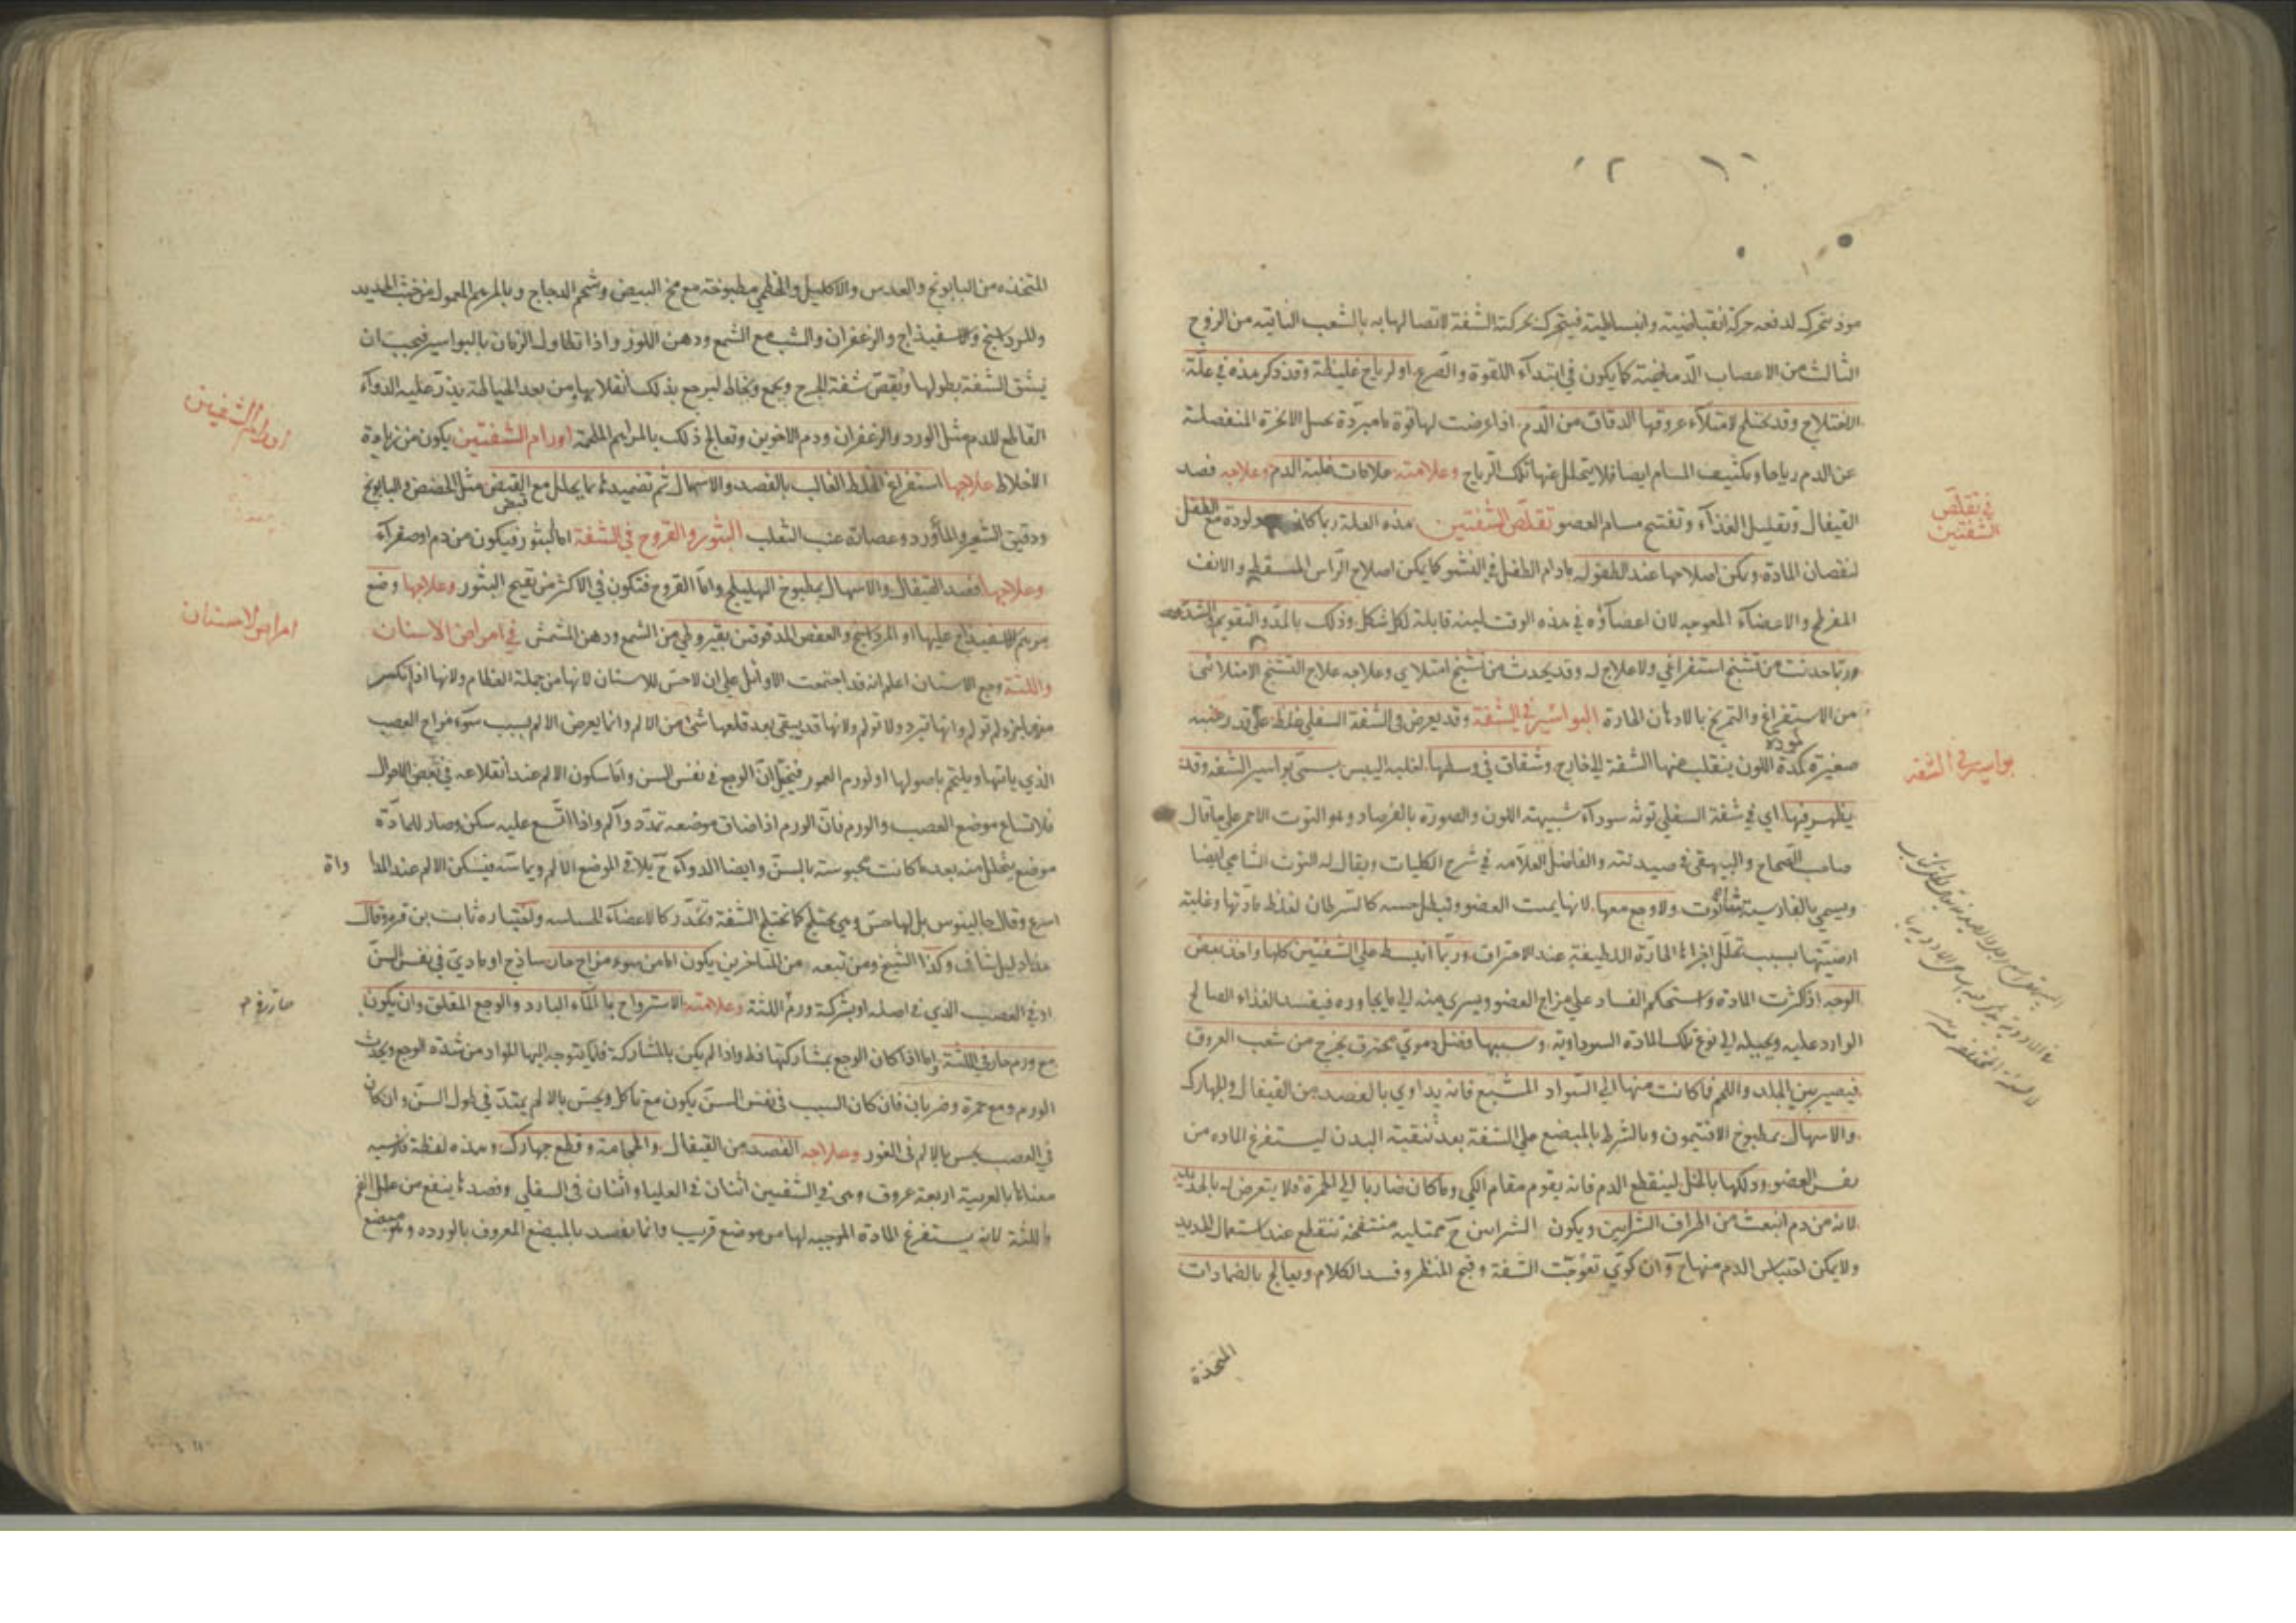 موذ يتحرك لدفعه حركة انقباضية وانبساطية فيتحرك بحركته الشفة لاتصالها به بالشعب الناتيه من الزوج
الثالث من الاعصاب الدماغية كما يكون في ابتداء اللقوة والصرع او لرياح غليظة وقد ذكر هذه في علة
الاختلاج وقد يختلج لامتلاء عروقها الدقاق من الدم اذا عرضت لها قوة ما مبردة تحيل الابخرة المنفصلة
عن الدم رياحا وتكثيف المسام ايضا فلا يتحلل عنها تلك الرياح وعلامته علامات غلبة الدم وعلاجه فصد
القيفال وتقليل الغذاء وتفتيح مسام العضو تقلص الشفتين هذه العلة ربما كانت مولودة مع الطفل
لنقصان المادة ويمكن اصلاحها عند الطفولية مادام الطفل في النشو كما يمكن اصلاح الراس المسفط والانف
المفرطح والاعضاء المعوجه لان اعضاؤه في هذه الوقت لينة قابلة لكل شكل وذلك بالمد والتقويم
وربما حدثت من تشنج استفراغي ولا علاج له وقد يحدث من تشنج امتلايي وعلاجه علاج التشنج الامتلائي
من الاستفراغ والتمريخ بالادهان الحارة البواسير في الشفة وقد يعرض في الشفة السفلى غلظ على قدر عنبه
صغيرة كمدة اللون ينقلب منها الشفة الى خارج وشقاق في وسطها لغلبة اليبس يسمى بواسير الشفه وقد
يظهر فيها اي في شفة السفلي توثه سوداء شبيهة اللون والصورة بالفرصاد وهو التوت الاحمر على ما قال
صاحب الصحاح والبيهقي في صيدنته والفاضل العلامه في شرح الكليات ويقال له التوث الشامي ايضا
ويسمى بالفارسية شاتوت ولا وجع معها لانها يميت العضو ويبطل حسه كالسرطان لغلظ مادتها وغلبة
ارضيتها بسبب تحلل اجزاء المادة اللطيفة عند الاحتراق وربما انبسط على الشفتين كلها واخذ بعض
الوجه اذا كثرت المادة واستحكم الفساد على مزاج العضو ويسري منه الى ما يجاوره فيفسد الغذاء الصالح
الوارد عليه ويحيله الى نوع تلك المادة السوداوية وسببها فضل دموي محترق يخرج من شعب العروق
فيصير بين الجلد واللحم فما كانت منها الى السواد المشبع فانه يداوي بالفصد من القيفال والجهارك
والاسهال بمطبوخ الافتيمون وبالشرط بالمبضع على الشفة بعد تنقية البدن ليستفرغ الماده من
نفس العضو ودلكها بالخل لينقطع الدم فانه يقوم مقام الكي وما كان ضاربا الى الحمرة فلا يتعرض له بالحديد
لانه من دم انبعث من اطراف الشرايين ويكون الشرايين ح ممتليه منتفخة تنقطع عند استعمال الحديد
ولا يمكن احتباس الدم منها ح وان كوي تعوجت الشفة وقبح المنظر وفسد الكلام ويعالج بالضمادات
المتخذة
في تقلص
الشفتين
بواسير في الشفه
المتخذه من البابونج والعدس والاكليل والخطمي مطبوخة مع مخ البيض وشحم الدجاج وبالمرهم المعمول من خبث الحديد
والمرداسنج والاسفيذاج والزعفران والشب مع الشمع ودهن اللوز واذا تطاول الزمان بالبواسير فيجب ان
يشق الشفة بطولها ويقص شفة الجرح ويجمع ويخاط ليرجع بذلك انقلابها من بعد الخياطة يذر عليه الدواء
القاطع للدم مثل الورد والزعفران ودم الاخوين وتعالج ذلك بالمراهم الملحمة اورام الشفتين يكون من زيادة
الاخلاط علاجها استفراغ الخلط الغالب بالفصد والاسهال ثم تضميده بما يحلل مع القبض مثل الحضض والبابونج
ودقيق الشعير والماورد وعصارة عنب الثعلب البثور والقروح في الشفة اما البثور فيكون من دم او صفراء
وعلاجها فصد القيفال والاسهال بمطبوخ الهليلج واما القروح فتكون في الاكثر من تقيح البثور وعلاجها وضع
مرهم الاسفيذاج عليها او المرداسنج والعفص المدقوقين بقيروطي من الشمع ودهن المشمش في امراض الاسنان
واللثة وجع الاسنان اعلم انه قد اجتمعت الاوائل على ان لا حس للاسنان لانها من جملة العظام ولانها اذا انكسر
منها جزء لم تولم وانها تبرد ولا تولم ولانها قد يبقى بعد قلعها شئ من الالم وانما يعرض الالم بسبب سوء مزاج العصب
الذي ياتيها ويلتحم باصولها او لورم العمور فيخيل ان الوجع في نفس السن واما سكون الالم عند انقلاعه في بعض الاحوال
فلاتساع موضع العصب والورم فان الورم اذا ضاق موضعه تمدد وآلم واذا اتسع عليه سكن وصار للمادة
موضع يتحلل منه بعد ما كانت محبوسة بالسن وايضا الدواء ح يلاقي الموضع الالم ويماسه فيسكن الالم عند المدا
واة
اسرع وقال جالينوس بل لها حس وهي يختلج كما تختلج الشفة وتخدر كالاعضاء الحساسه واختياره ثابت بن قره وقال
هذا دليل شاف وكذا الشيخ ومن تبعه من المتاخرين يكون اما من سوء مزاج حار ساذج او مادي في نفس السن
او في العصب الذي في اصله او بشركة ورم اللثة وعلامته الاسترواح بالماء البارد والوجع المقلق وان يكون
مع ورم حار في اللثة واما اذا كان الوجع بمشاركتها فظ واذا لم يكن بالمشاركة فلما يتوجه اليها المواد من شدة الوجع ويحدث
الورم ومع حمرة وضربان فان كان السبب في نفس السن يكون مع تاكل ويحس بالالم يمتد في طول السن وان كان
في العصب يحس بالالم في الغور وعلاجه الفصد من القيفال والحجامة وقطع جهارك وهذه لفظة فارسيه
معناها بالعربية اربعة عروق وهي في الشفتين اثنان في العليا واثنان في السفلى وفصدها ينفع من علل الفم
واللثة لانه يستفرغ المادة الموجبه لها من موضع قريب وانما تفصد بالمبضع المعروف بالورده وهو مبضع
اورام الشفتين
امراض الاسنان